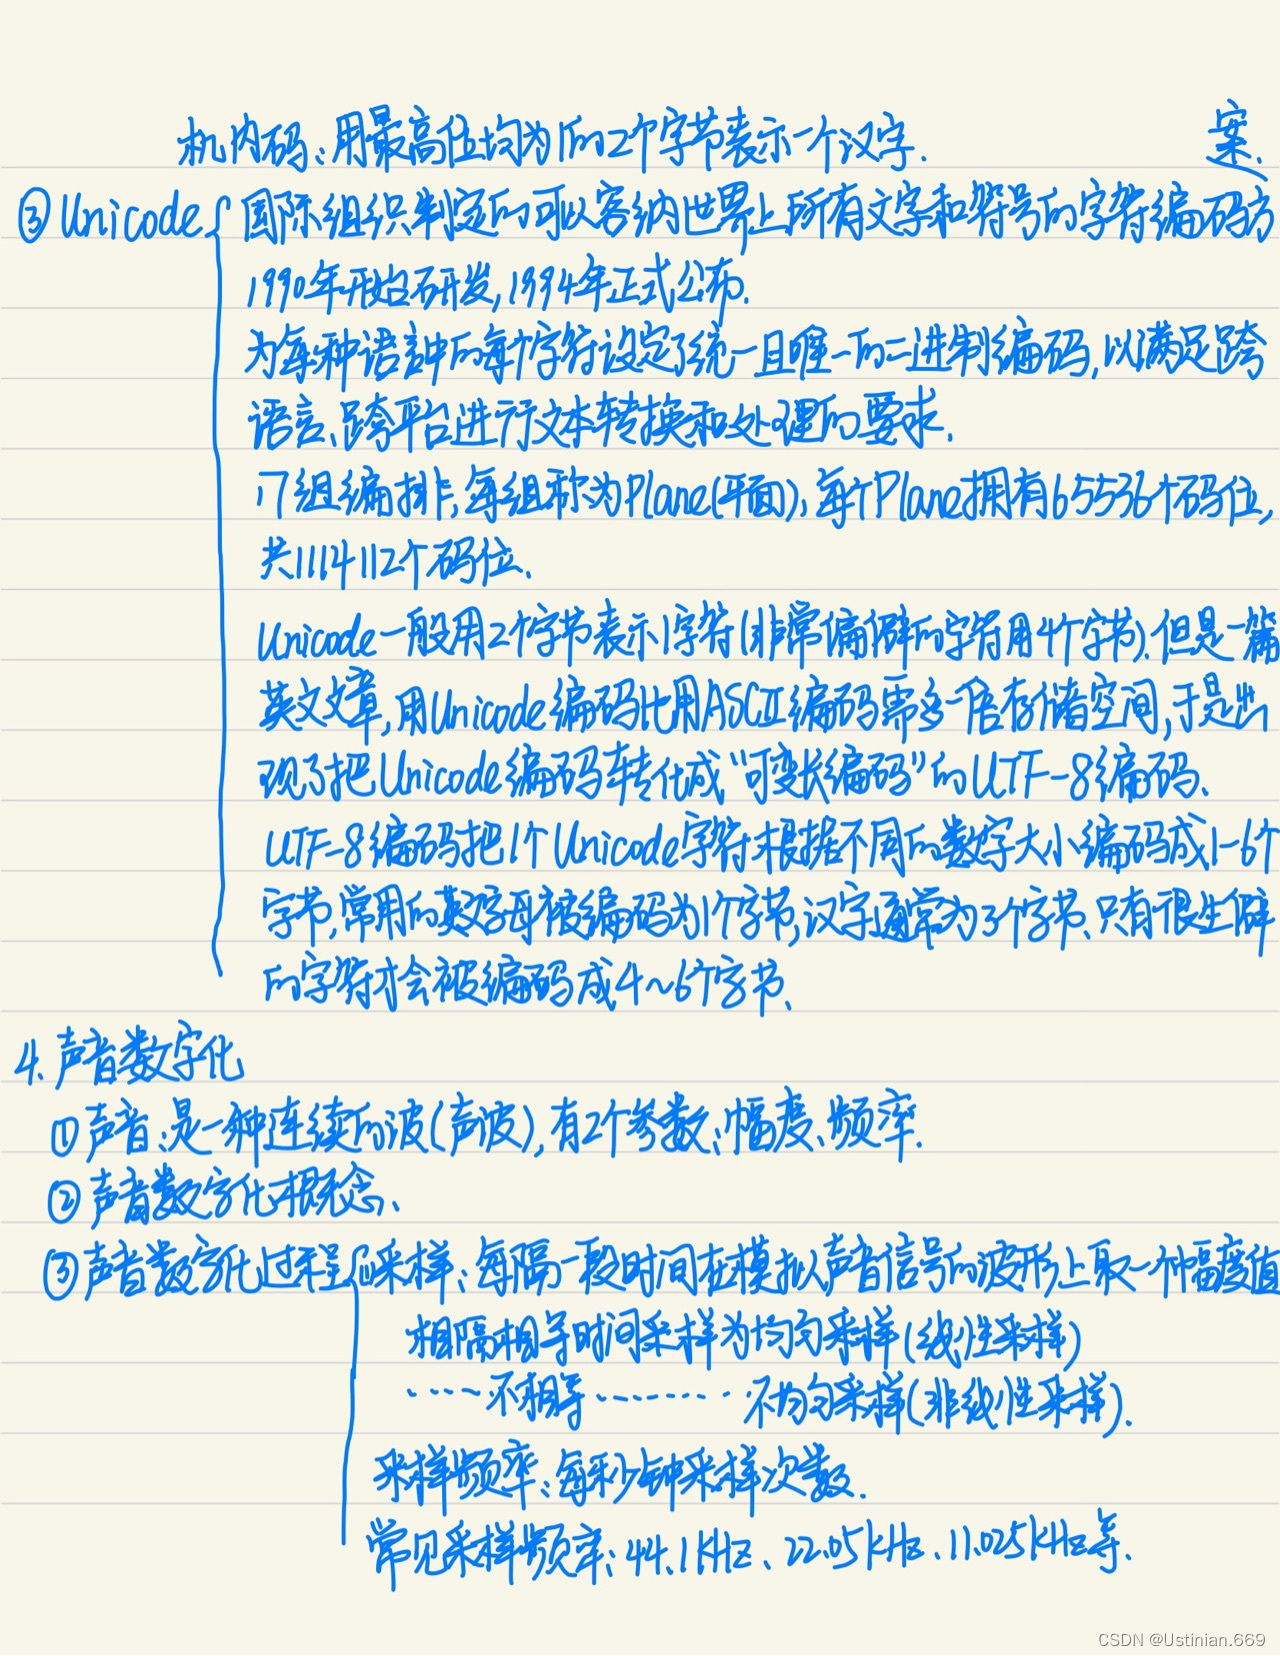 机内码:用最高位均为1的2个字节表示一个汉字.
案.
③Unicode{国际组织制定的可以容纳世界上所有文字和符号的字符编码方
1990年开始研发,1994年正式公布.
为每种语言中的每个字符设定了统一且唯一的二进制编码,以满足跨
语言、跨平台进行文本转换和处理的要求.
17组编排,每组称为Plane(平面),每个Plane拥有65536个码位,
共1114112个码位.
Unicode一般用2个字节表示1字符(非常偏僻的字符用4个字节).但是一篇
英文文章,用Unicode编码比用ASCII编码需多一倍存储空间,于是出
现了把Unicode编码转化成“可变长编码”的UTF-8编码.
UTF-8编码把1个Unicode字符根据不同的数字大小编码成1-6个
字节,常用的英文字母被编码为1个字节,汉字通常为3个字节、只有很生僻
的字符才会被编码成4~6个字节.
4.声音数字化
①声音:是一种连续的波(声波),有2个参数:幅度、频率.
②声音数字化概念.
③声音数字化过程{采样:每隔一段时间在模拟声音信号的波形上取一个幅度值
相隔相等时间采样为均匀采样(线性采样)
.....不相等........不均匀采样(非线性采样).
采样频率:每秒钟采样次数.
常见采样频率:44.1kHZ、22.05kHz、11.025kHz等.
CSDN @Ustinian.669